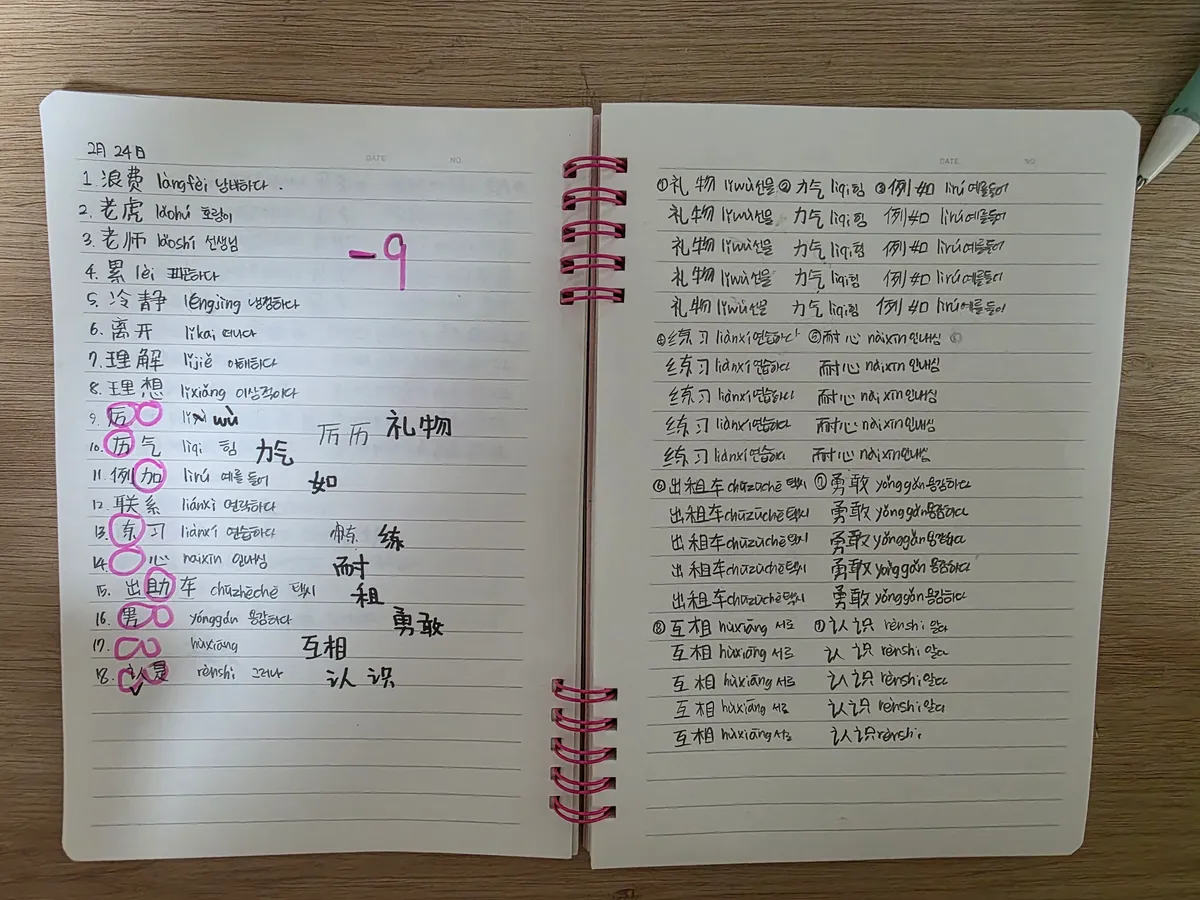 2月 24日
DATE NO.
1. 浪费 làngfèi 낭비하다.
2. 老虎 lǎohǔ 호랑이
3. 老师 lǎoshī 선생님
-9
4. 累 lèi 피곤하다
5. 冷静 lěngjìng 냉정하다
6. 离开 líkāi 떠나다
7. 理解 lǐjiě 이해하다
8. 理想 lǐxiǎng 이상적이다
9. 厉 wù 厉 历 礼物
10. 历气 lìqi 힘 力气
11. 例加 lìrú 예를 들어 如
12. 联系 liánxì 연락하다
13. 习 liànxí 연습하다 练
14. 心 nàixīn 인내심 耐
15. 出助车 chūzhēchē 택시 租
16. 男 yǒnggǎn 용감하다 勇敢
17. hùxiāng 互相
18. 认是 rènshi 그러나 认识
DATE NO.
①礼物 lǐwù 선물 ②力气 lìqi 힘 ③例如 lìrú 예를들어
礼物 lǐwù 선물 力气 lìqi 힘 例如 lìrú 예를들어
礼物 lǐwù 선물 力气 lìqi 힘 例如 lìrú 예를들어
礼物 lǐwù 선물 力气 lìqi 힘 例如 lìrú 예를들어
礼物 lǐwù 선물 力气 lìqi 힘 例如 lìrú 예를들어
④练习 liànxí 연습하다 ⑤耐心 nàixīn 인내심
练习 liànxí 연습하다 耐心 nàixīn 인내심
练习 liànxí 연습하다 耐心 nàixīn 인내심
练习 liànxí 연습하다 耐心 nàixīn 인내심
练习 liànxí 연습하다 耐心 nàixīn 인내심
⑥出租车 chūzūchē 택시 ⑦勇敢 yǒnggǎn 용감하다
出租车 chūzūchē 택시 勇敢 yǒnggǎn 용감하다
出租车 chūzūchē 택시 勇敢 yǒnggǎn 용감하다
出租车 chūzūchē 택시 勇敢 yǒnggǎn 용감하다
出租车 chūzūchē 택시 勇敢 yǒnggǎn 용감하다
⑧互相 hùxiāng 서로 ⑨认识 rènshi 알다
互相 hùxiāng 서로 认识 rènshi 알다
互相 hùxiāng 서로 认识 rènshi 알다
互相 hùxiāng 서로 认识 rènshi 알다
互相 hùxiāng 서로 认识 rènshi